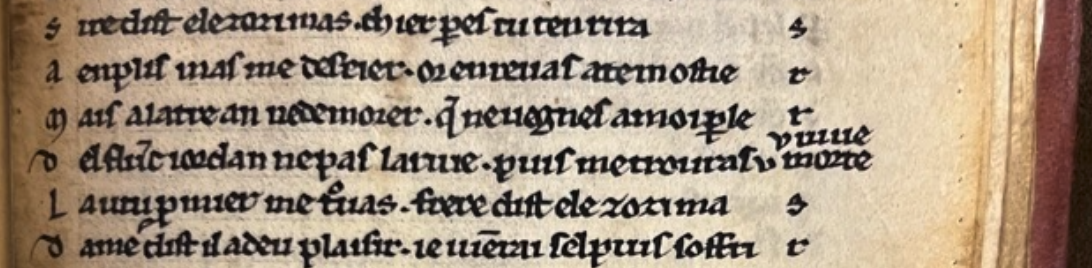 s iredist ele zozimas. chier ꝑes tu ten rira s
a enplis mas me desirer. or en reuas a te mostie r
m ais alatre an nedemorer. q̃ ne uegnes a moi ꝑle r
d el flũc iordan ne pas la riue. puis me trouuras v uiuue
v morte
L au tu pmier me tͦuas. frere dist ele zozima s
d ame dist il a deu plaisir. ie uiẽrai sel puis soffri r